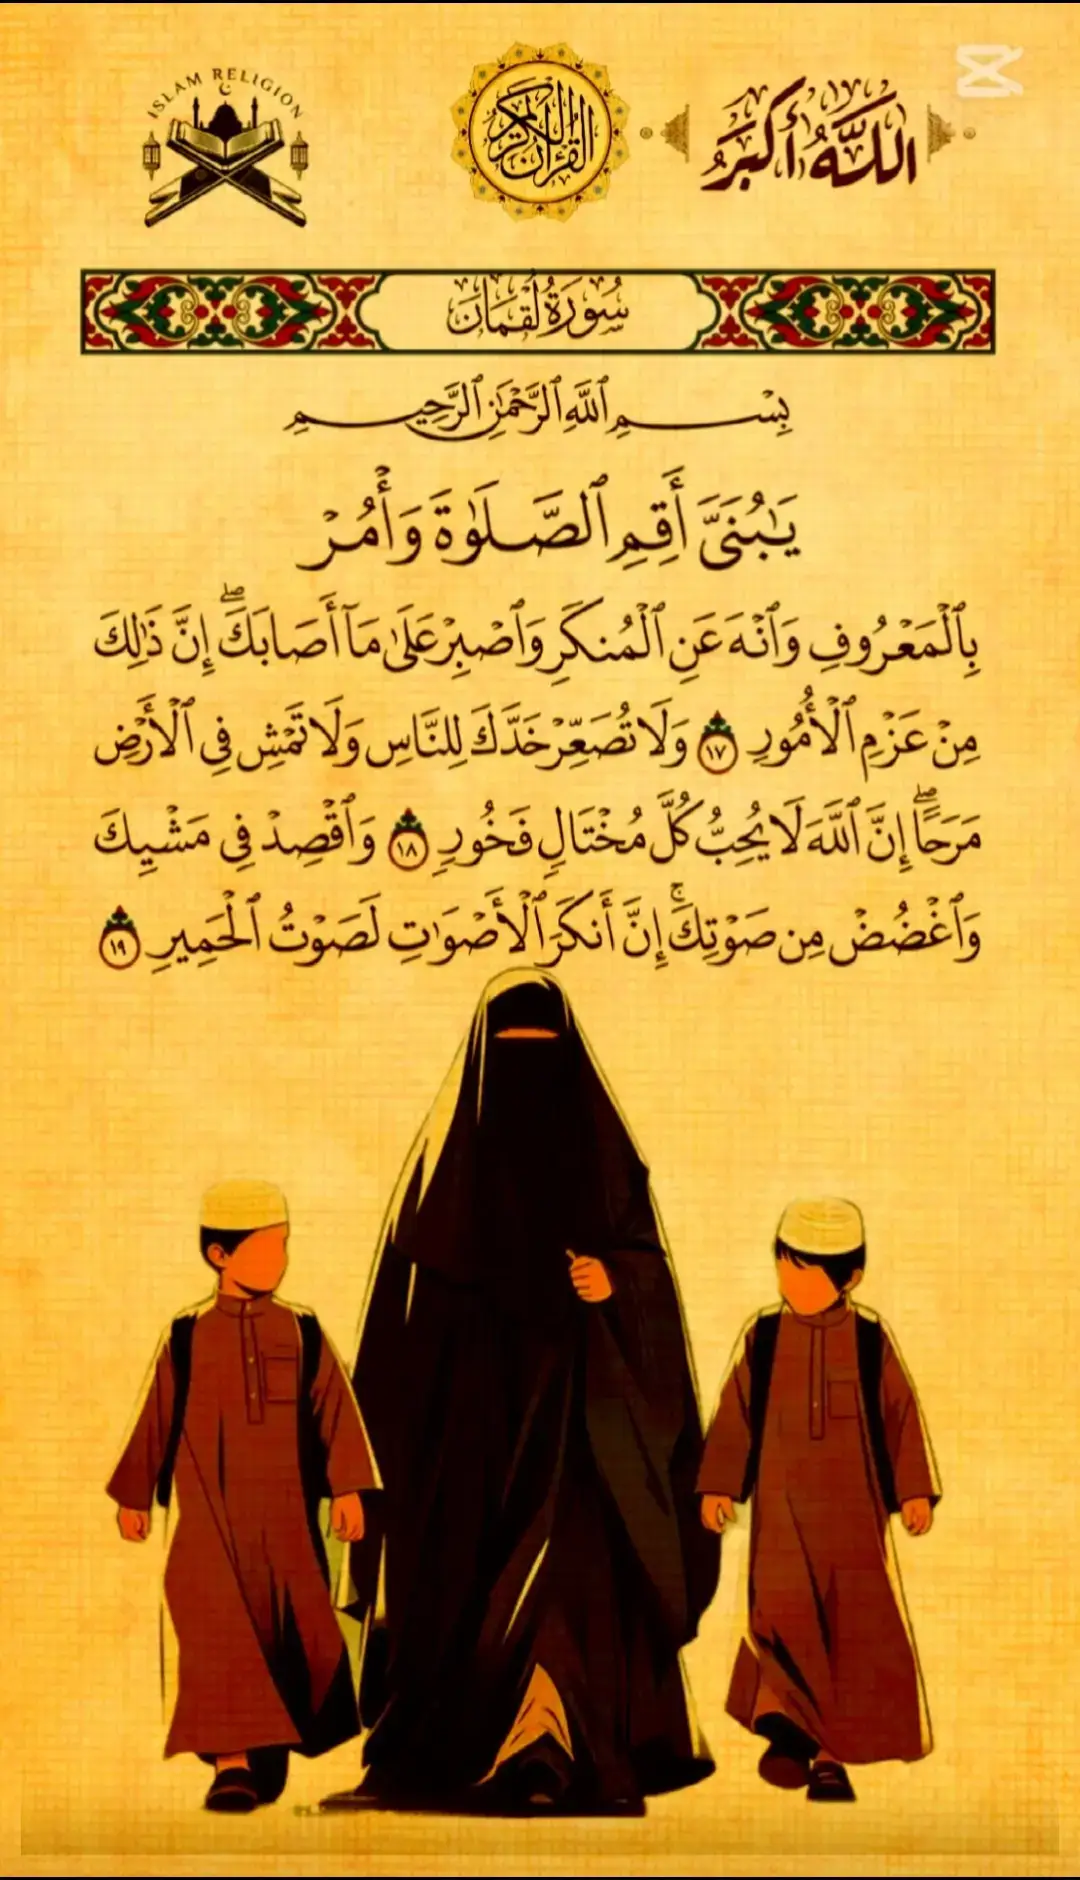 ISLAM RELIGION
القرآن الكريم
اللَّهُ أَكْبَرُ
سُورَةُ لُقْمَان
بِسْمِ ٱللَّهِ ٱلرَّحْمَٰنِ ٱلرَّحِيمِ
يَٰبُنَىَّ أَقِمِ ٱلصَّلَوٰةَ وَأْمُرْ
بِٱلْمَعْرُوفِ وَٱنْهَ عَنِ ٱلْمُنكَرِ وَٱصْبِرْ عَلَىٰ مَآ أَصَابَكَۖ إِنَّ ذَٰلِكَ
مِنْ عَزْمِ ٱلْأُمُورِ ١٧ وَلَا تُصَعِّرْ خَدَّكَ لِلنَّاسِ وَلَا تَمْشِ فِى ٱلْأَرْضِ
مَرَحًاۖ إِنَّ ٱللَّهَ لَا يُحِبُّ كُلَّ مُخْتَالٍ فَخُورٍ ١٨ وَٱقْصِدْ فِى مَشْيِكَ
وَٱغْضُضْ مِن صَوْتِكَۚ إِنَّ أَنكَرَ ٱلْأَصْوَٰتِ لَصَوْتُ ٱلْحَمِيرِ ١٩